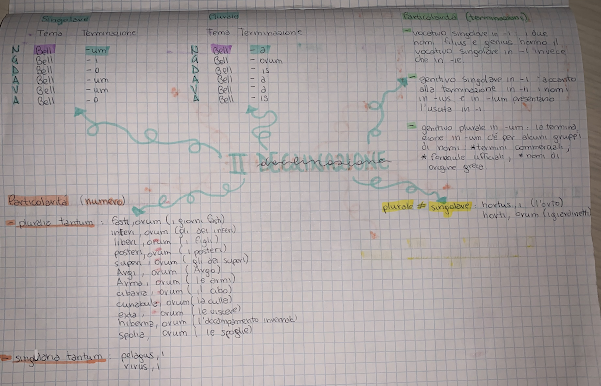 Singolare
Tema Terminazione
N Bell -um
G Bell -i
D Bell -o
A Bell -um
V Bell -um
A Bell -o
Plurale
Tema Terminazione
N Bell -a
G Bell -orum
D Bell -is
A Bell -a
V Bell -a
A Bell -is
Particolarità (terminazioni)
- vocativo singolare in -i: i due
nomi filius e genius hanno il
vocativo singolare in -i invece
che in -ie
- genitivo singolare in -i: accanto
alla terminazione in -ii i nomi
in -ius e in -ium presentano
l'uscita in -i
- genitivo plurale in -um: la termina
zione in -um c'è per alcuni gruppi
di nomi: * termini commerciali,
* formule ufficiali, * nomi di
origine greca
II DECLINAZIONE
declinazione
Particolarità (numero)
pluralia tantum: fasti, orum (i giorni fasti)
inferi, orum (gli dei inferi)
liberi, orum (i figli)
posteri, orum (i posteri)
superi, orum (gli dei superi)
Argi, orum (Argo)
Arma, orum (le armi)
cibaria, orum (il cibo)
cunabula, orum (la culla)
exta, orum (le viscere)
hiberna, orum (l'accampamento invernale)
spolia, orum (le spoglie)
singularia tantum pelagus, i
virus, i
plurale ≠ singolare: hortus, i (l'orto)
horti, orum (i giardinetti)